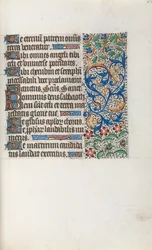 Te eternū patrem omnis
terra veneratur.
Tibi omnes angeli tibi
celi et universe potestates.
Tibi cherubin et seraphi
incessabili voce proclamant
Sanctus, Scūs, Sanct
Dominus deus sabaoth
Pleni sūt celi et terra
statis glorie tue.
Te chorus
Te laudabilis nu
merus
Te martirum candidatus
laudat exercitus.